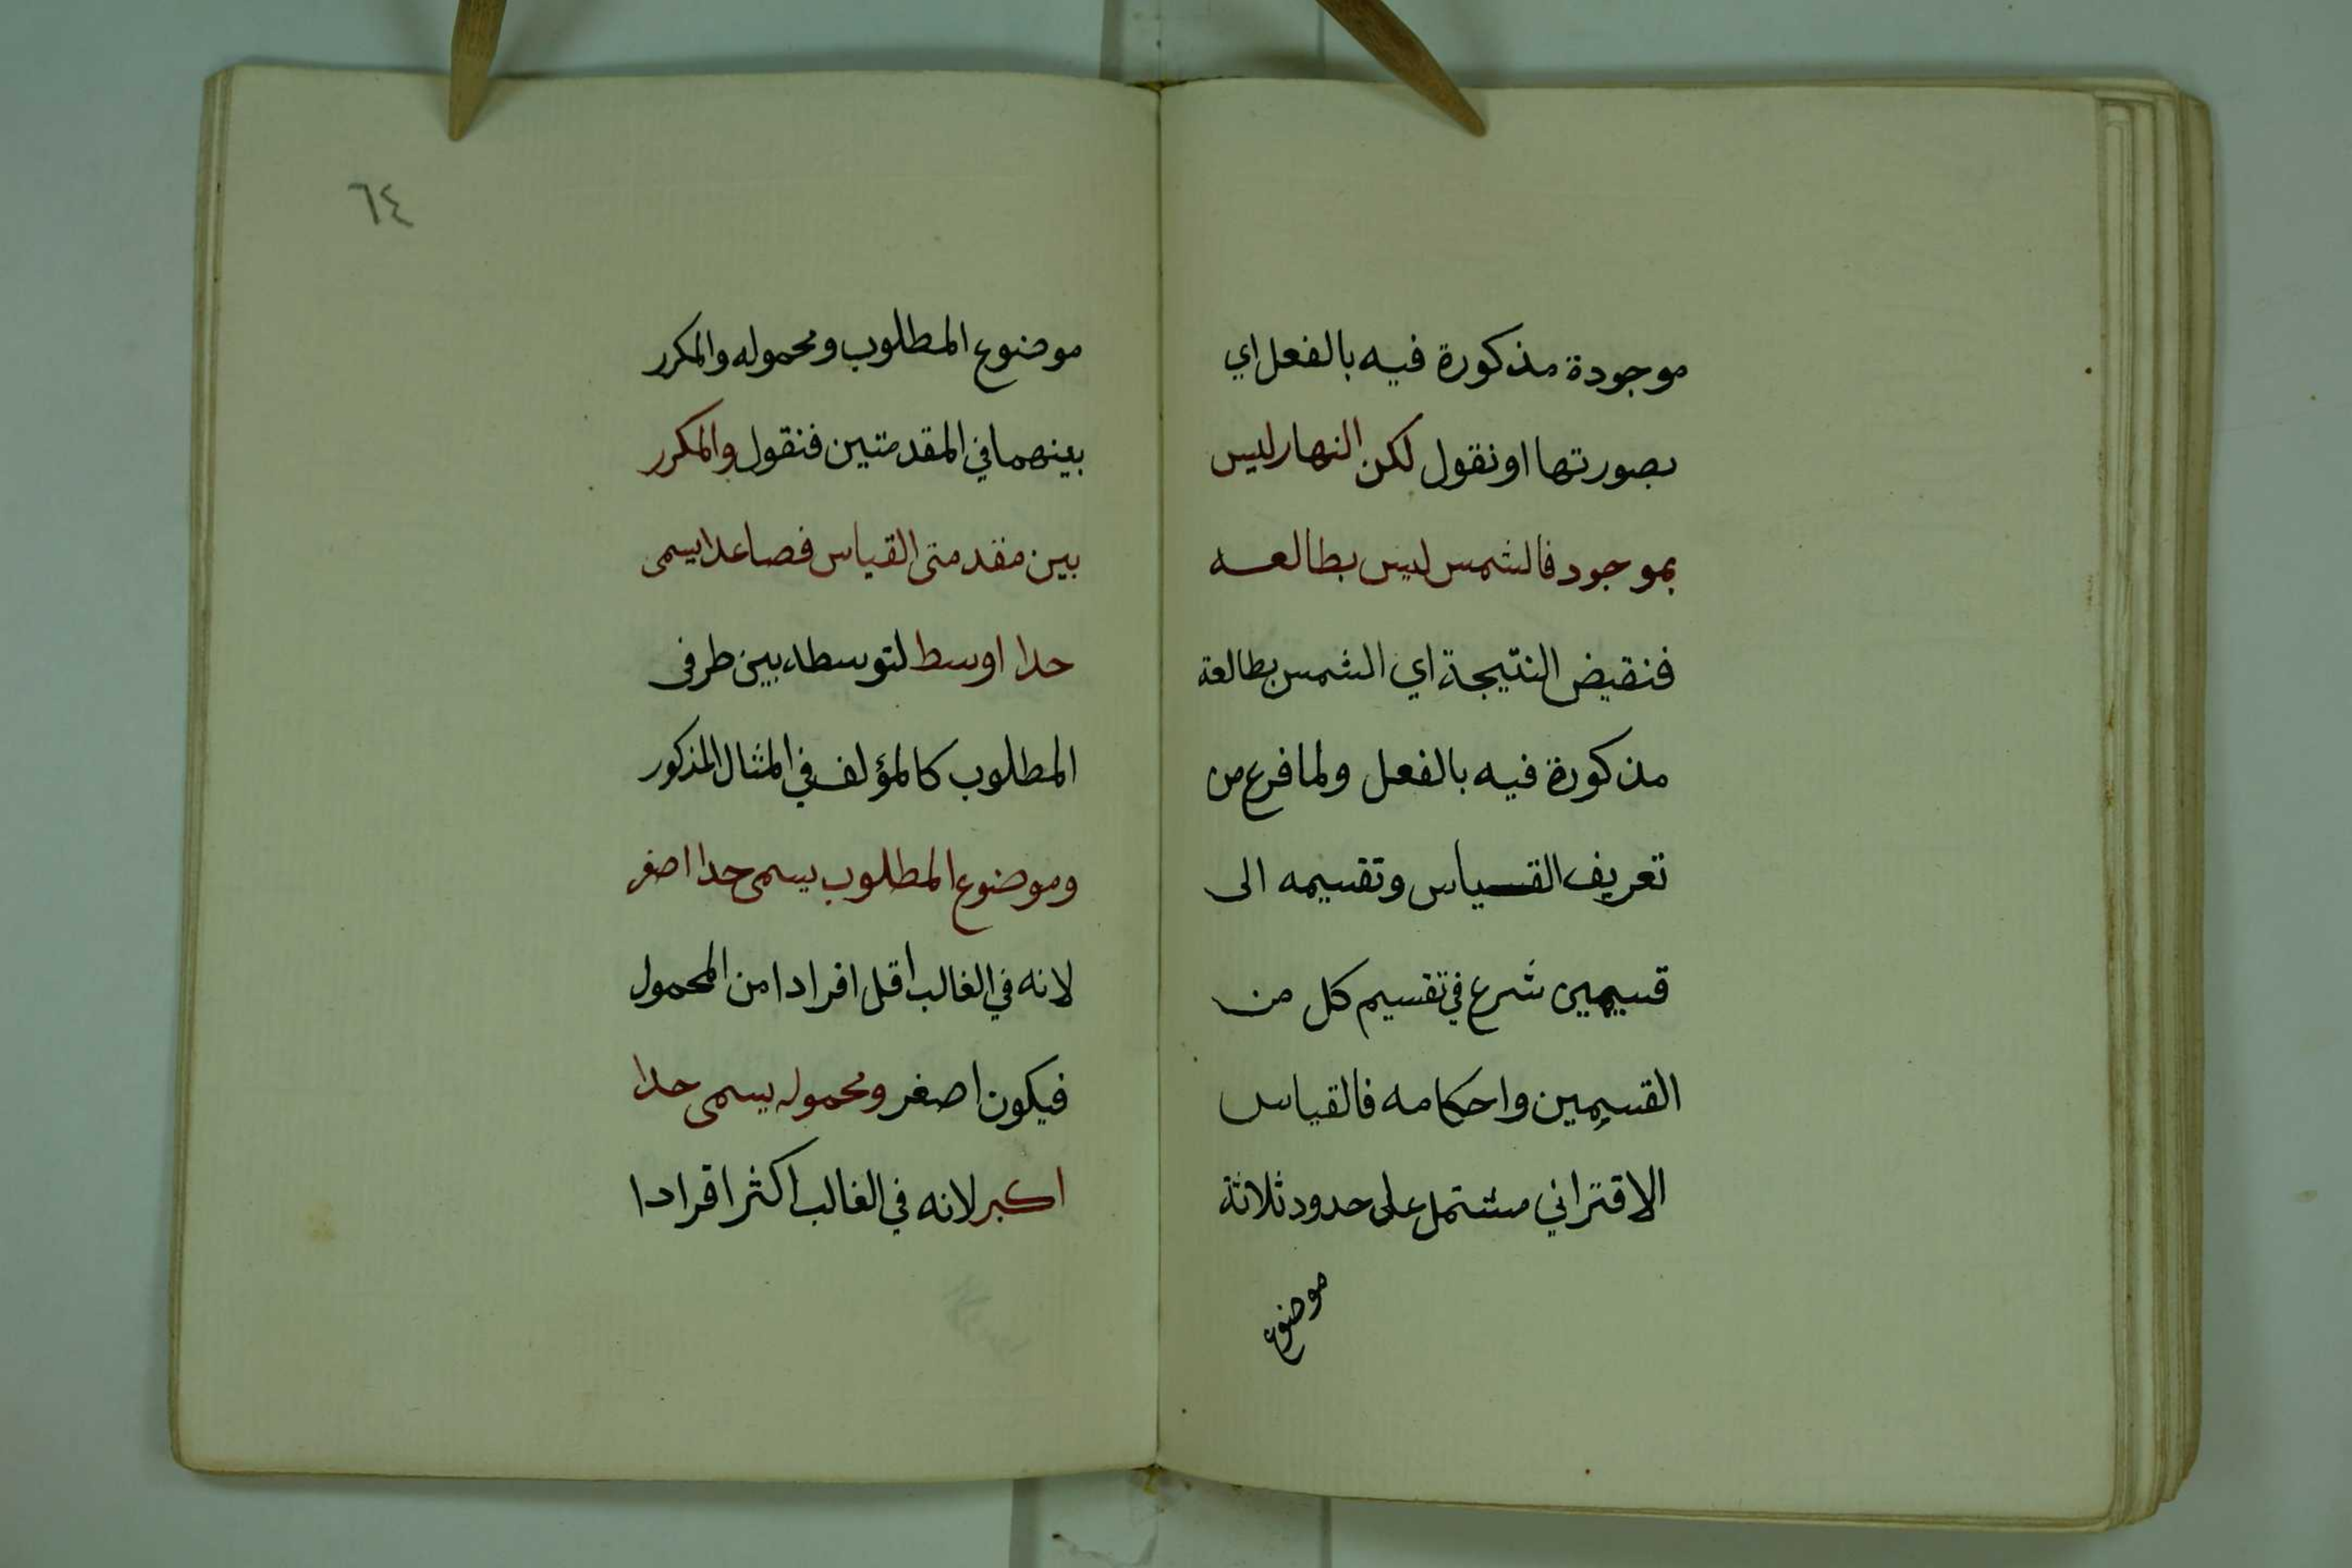 موجودة مذكورة فيه بالفعل اي
بصورتها او نقول لكن النهار ليس
بموجود فالشمس ليس بطالعه
فنقيض النتيجة اي الشمس بطالعة
مذكورة فيه بالفعل ولما فرع من
تعريف القسياس وتقسيمه الى
قسيمين شرع في تقسيم كل من
القسيمين واحكامه فالقياس
الاقتراني مشتمل على حدود ثلاثة
موضوع
٦٤
موضوع المطلوب ومحموله والمكرر
بينهما في المقدمتين فنقول والمكرر
بين مقدمتى القياس فصاعدا يسمى
حدا اوسط لتوسطه بين طرفى
المطلوب كالمؤلف في المثال المذكور
وموضوع المطلوب يسمى حدا اصغر
لانه في الغالب اقل افرادا من المحمول
فيكون اصغر ومحموله يسمى حدا
اكبر لانه في الغالب اكثر افرادا